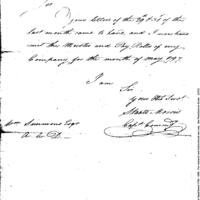 Sir
Your letters of the 29 & 31 of the
last month came to hand, and I now have
sent the Muster and Pay Rolls of my
Company for the month of May 1797.
I am Sir
Your Obt Servt
Staats Morris
Capt Comdg
Wm Simmons Esqr